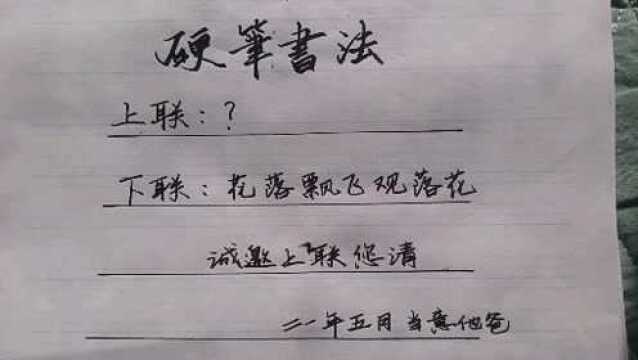 硬筆書法
上联：？
下联：花落飘飞观落花
诚邀上联您请
二一年五月 当意他爸